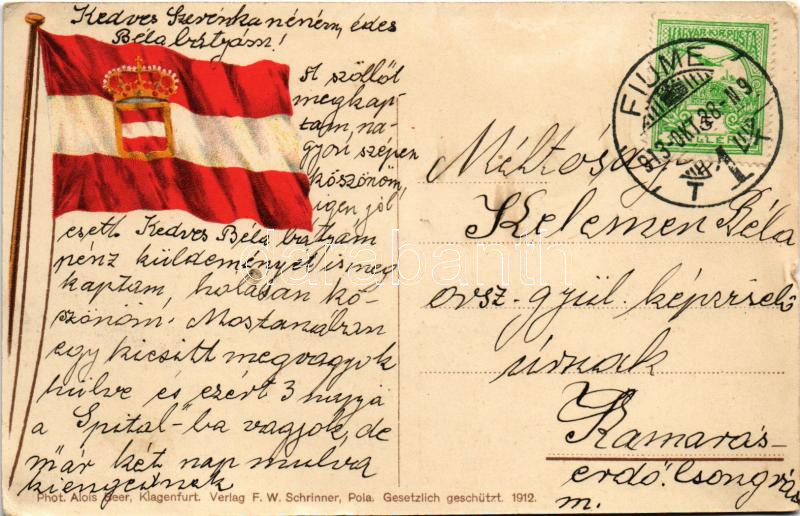 Kedves Szerénka néném, édes
Béla bátyám!
A szőllőt
megkap-
tam, na-
gyon szépen
köszönöm,
igen jól
esett. Kedves Béla bátyám
pénz küldeményét is meg
kaptam, hálásan kö-
szönöm. Mostanában
egy kicsitt megvagyok
hülve és ezért 3 napja
a "Spital"-ba vagyok, de
már két nap mulva
kiengednek
Phot. Alois Beer, Klagenfurt. Verlag F. W. Schrinner, Pola. Gesetzlich geschützt. 1912.
MAGYAR KIR. POSTA
FIUME
913 OKT. 28 - N. 9
Méltóságos
Kelemen Béla
orsz. gyül. képviselő
úrnak
Kamarás-
erdő. Csongrád
m.
darabanth